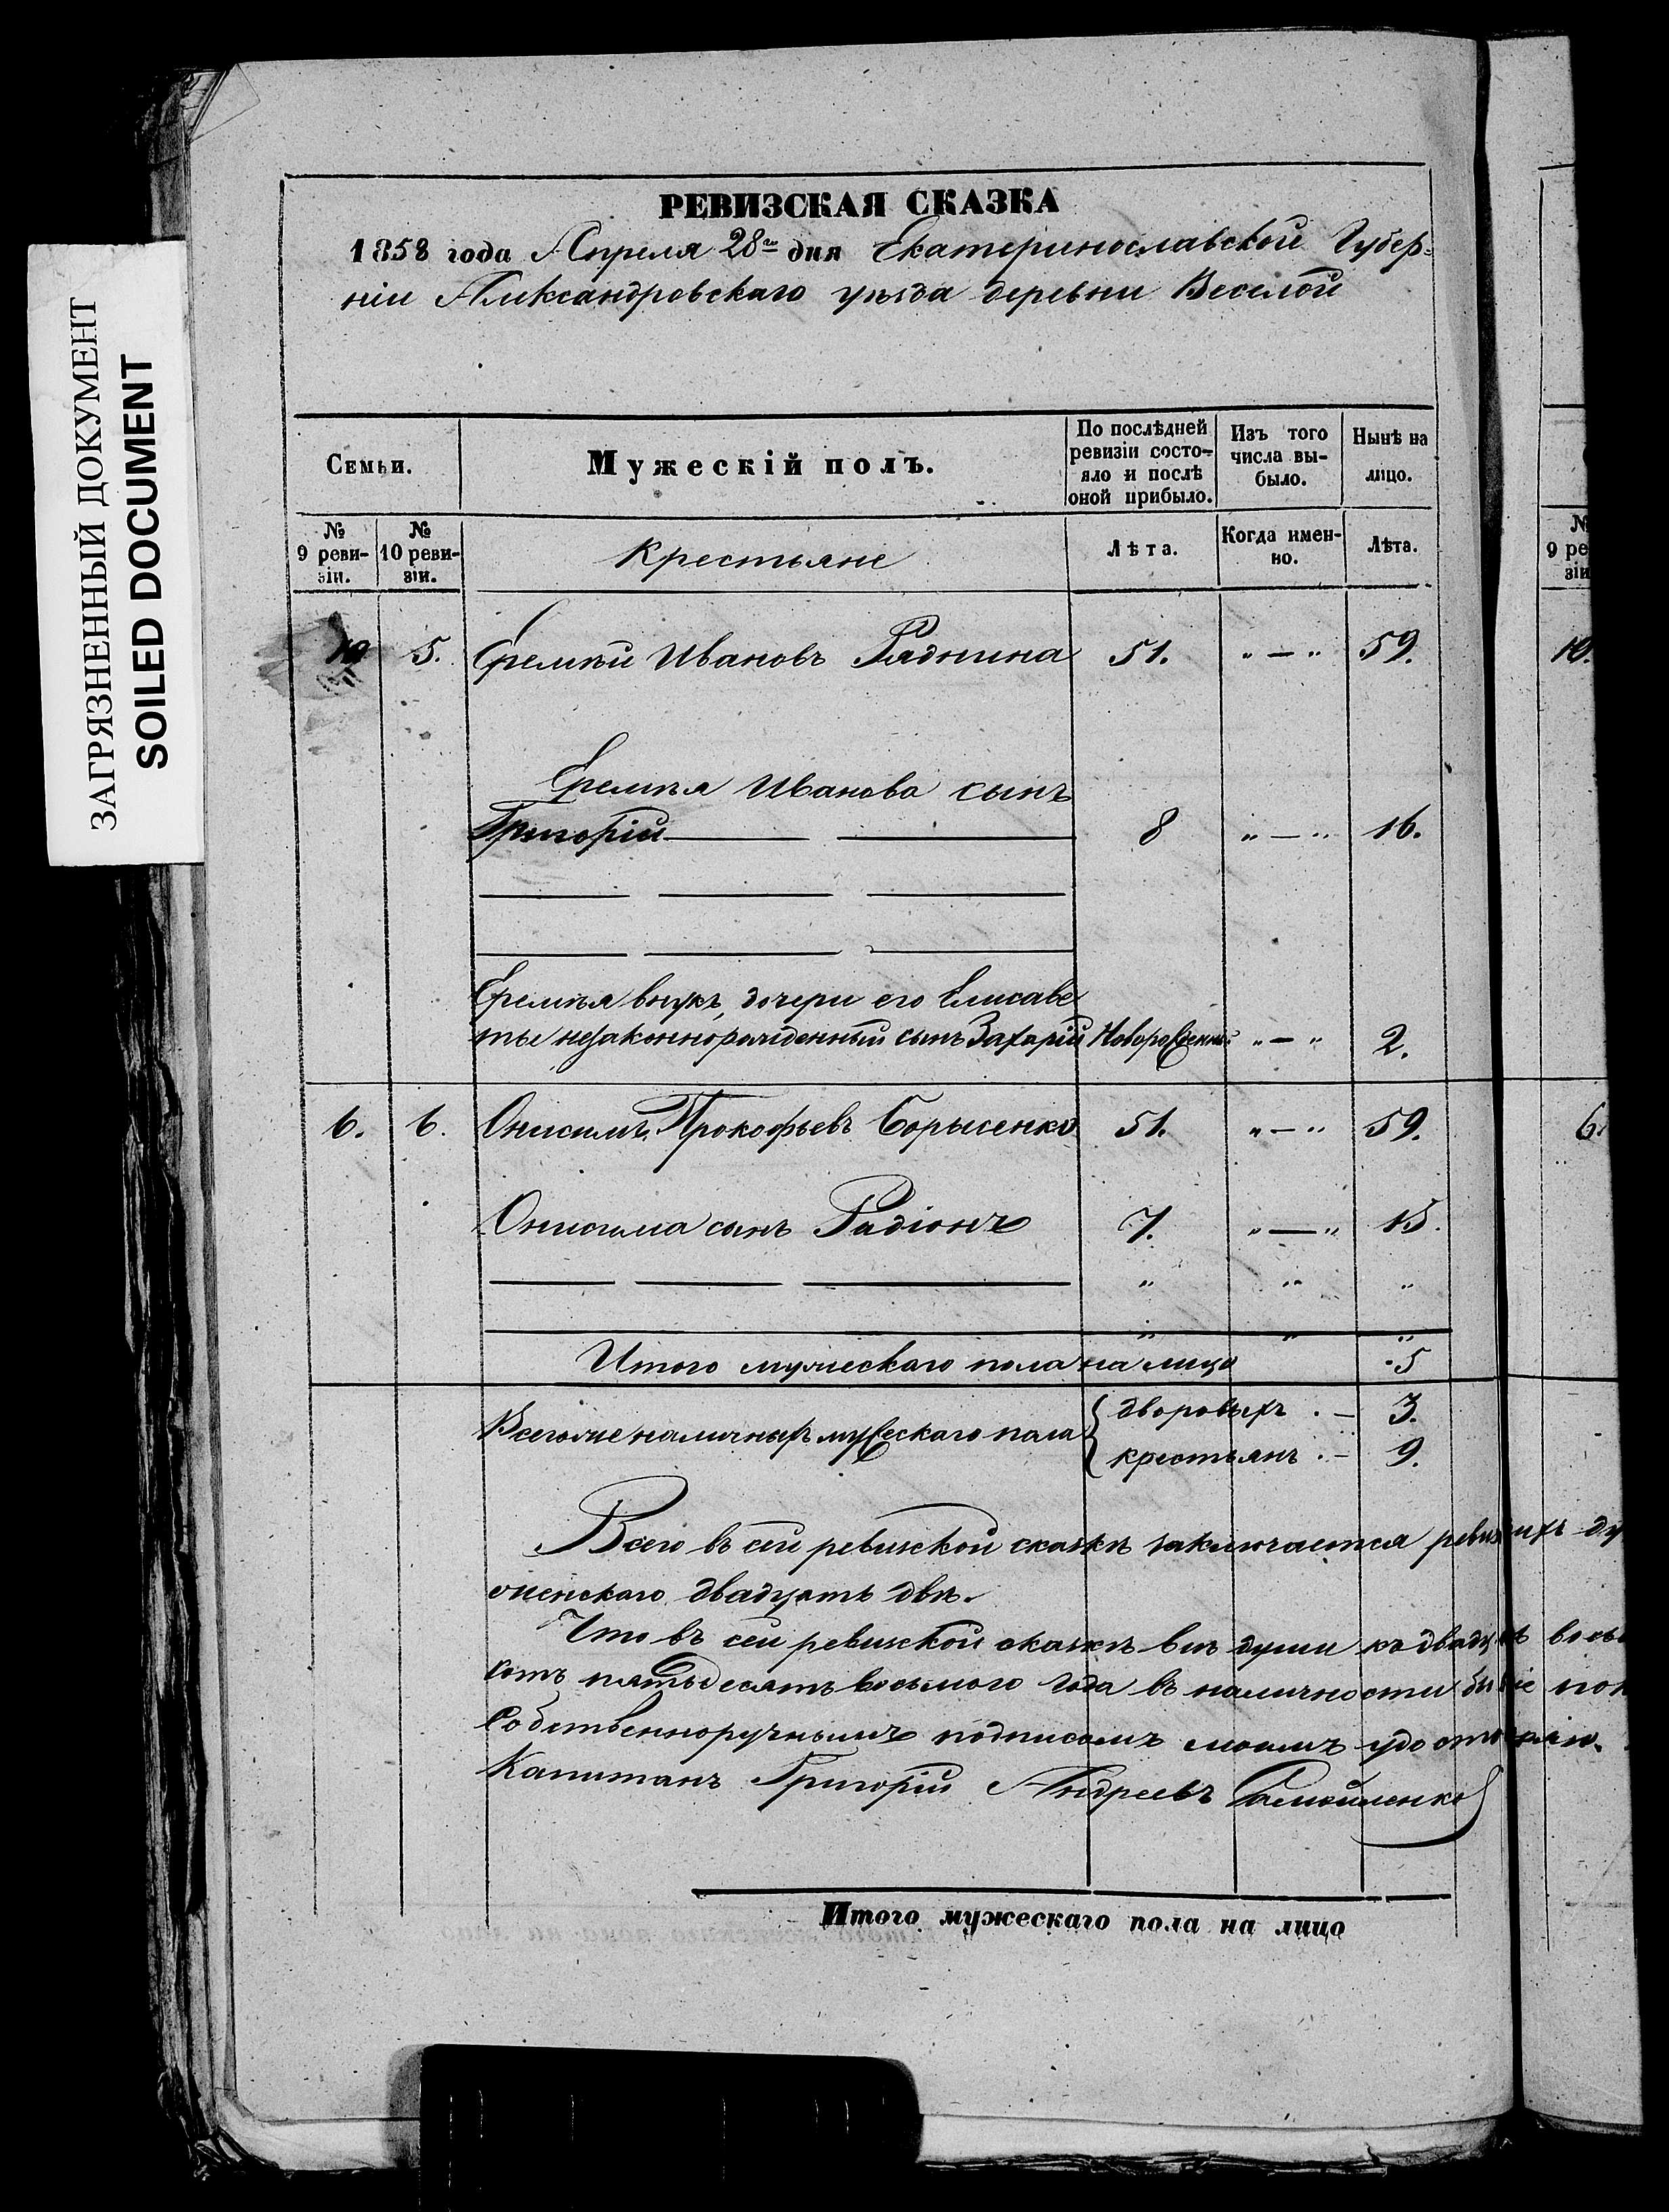 ЗАГРЯЗНЕННЫЙ ДОКУМЕНТ
SOILED DOCUMENT
РЕВИЗСКАЯ СКАЗКА
1858 года Апреля 28го дня Екатеринославской Губер-
ніи Александровскаго уѣзда деревни Веселой
Семьи.
Мужескій полъ.
По послѣдней ревизіи состо- яло и послѣ оной прибыло.
Изъ того числа вы- было.
Нынѣ на лицо.
№ 9 реви- зіи.
№ 10 реви- зіи.
Крестьяне
Лѣта.
Когда имен- но.
Лѣта.
№ 9 ре зіи
10 5. Еремѣй Ивановъ Раднина 51. „ — „ 59. 10.
Еремѣя Иванова сынъ
Григорій 8 „ — „ 16.
Еремѣя внукъ, дочери его Елисаве
ты незаконнорожденный сынъ Захарій Новорожденный „ — „ 2.
6. 6. Онисимъ Прокофьевъ Борысенко 51. „ — „ 59. 6.
Онисима сынъ Радіонъ 7. „ — „ 15.
„ „ „
„ „ „
Итого мужескаго пола на лицо 5
Всего же наличныхъ мужескаго пола { дворовыхъ . — 3.
крестьянъ . — 9.
Всего въ сей ревизской сказкѣ заключается ду
женскаго двадцать двѣ.
Что въ сей ревизской сказкѣ всѣ души по
сотъ пятьдесятъ восьмого года въ наличности
Собственноручнымъ подписомъ моимъ
Капитанъ Григорій Андреевъ Самойленко
Итого мужескаго пола на лицо